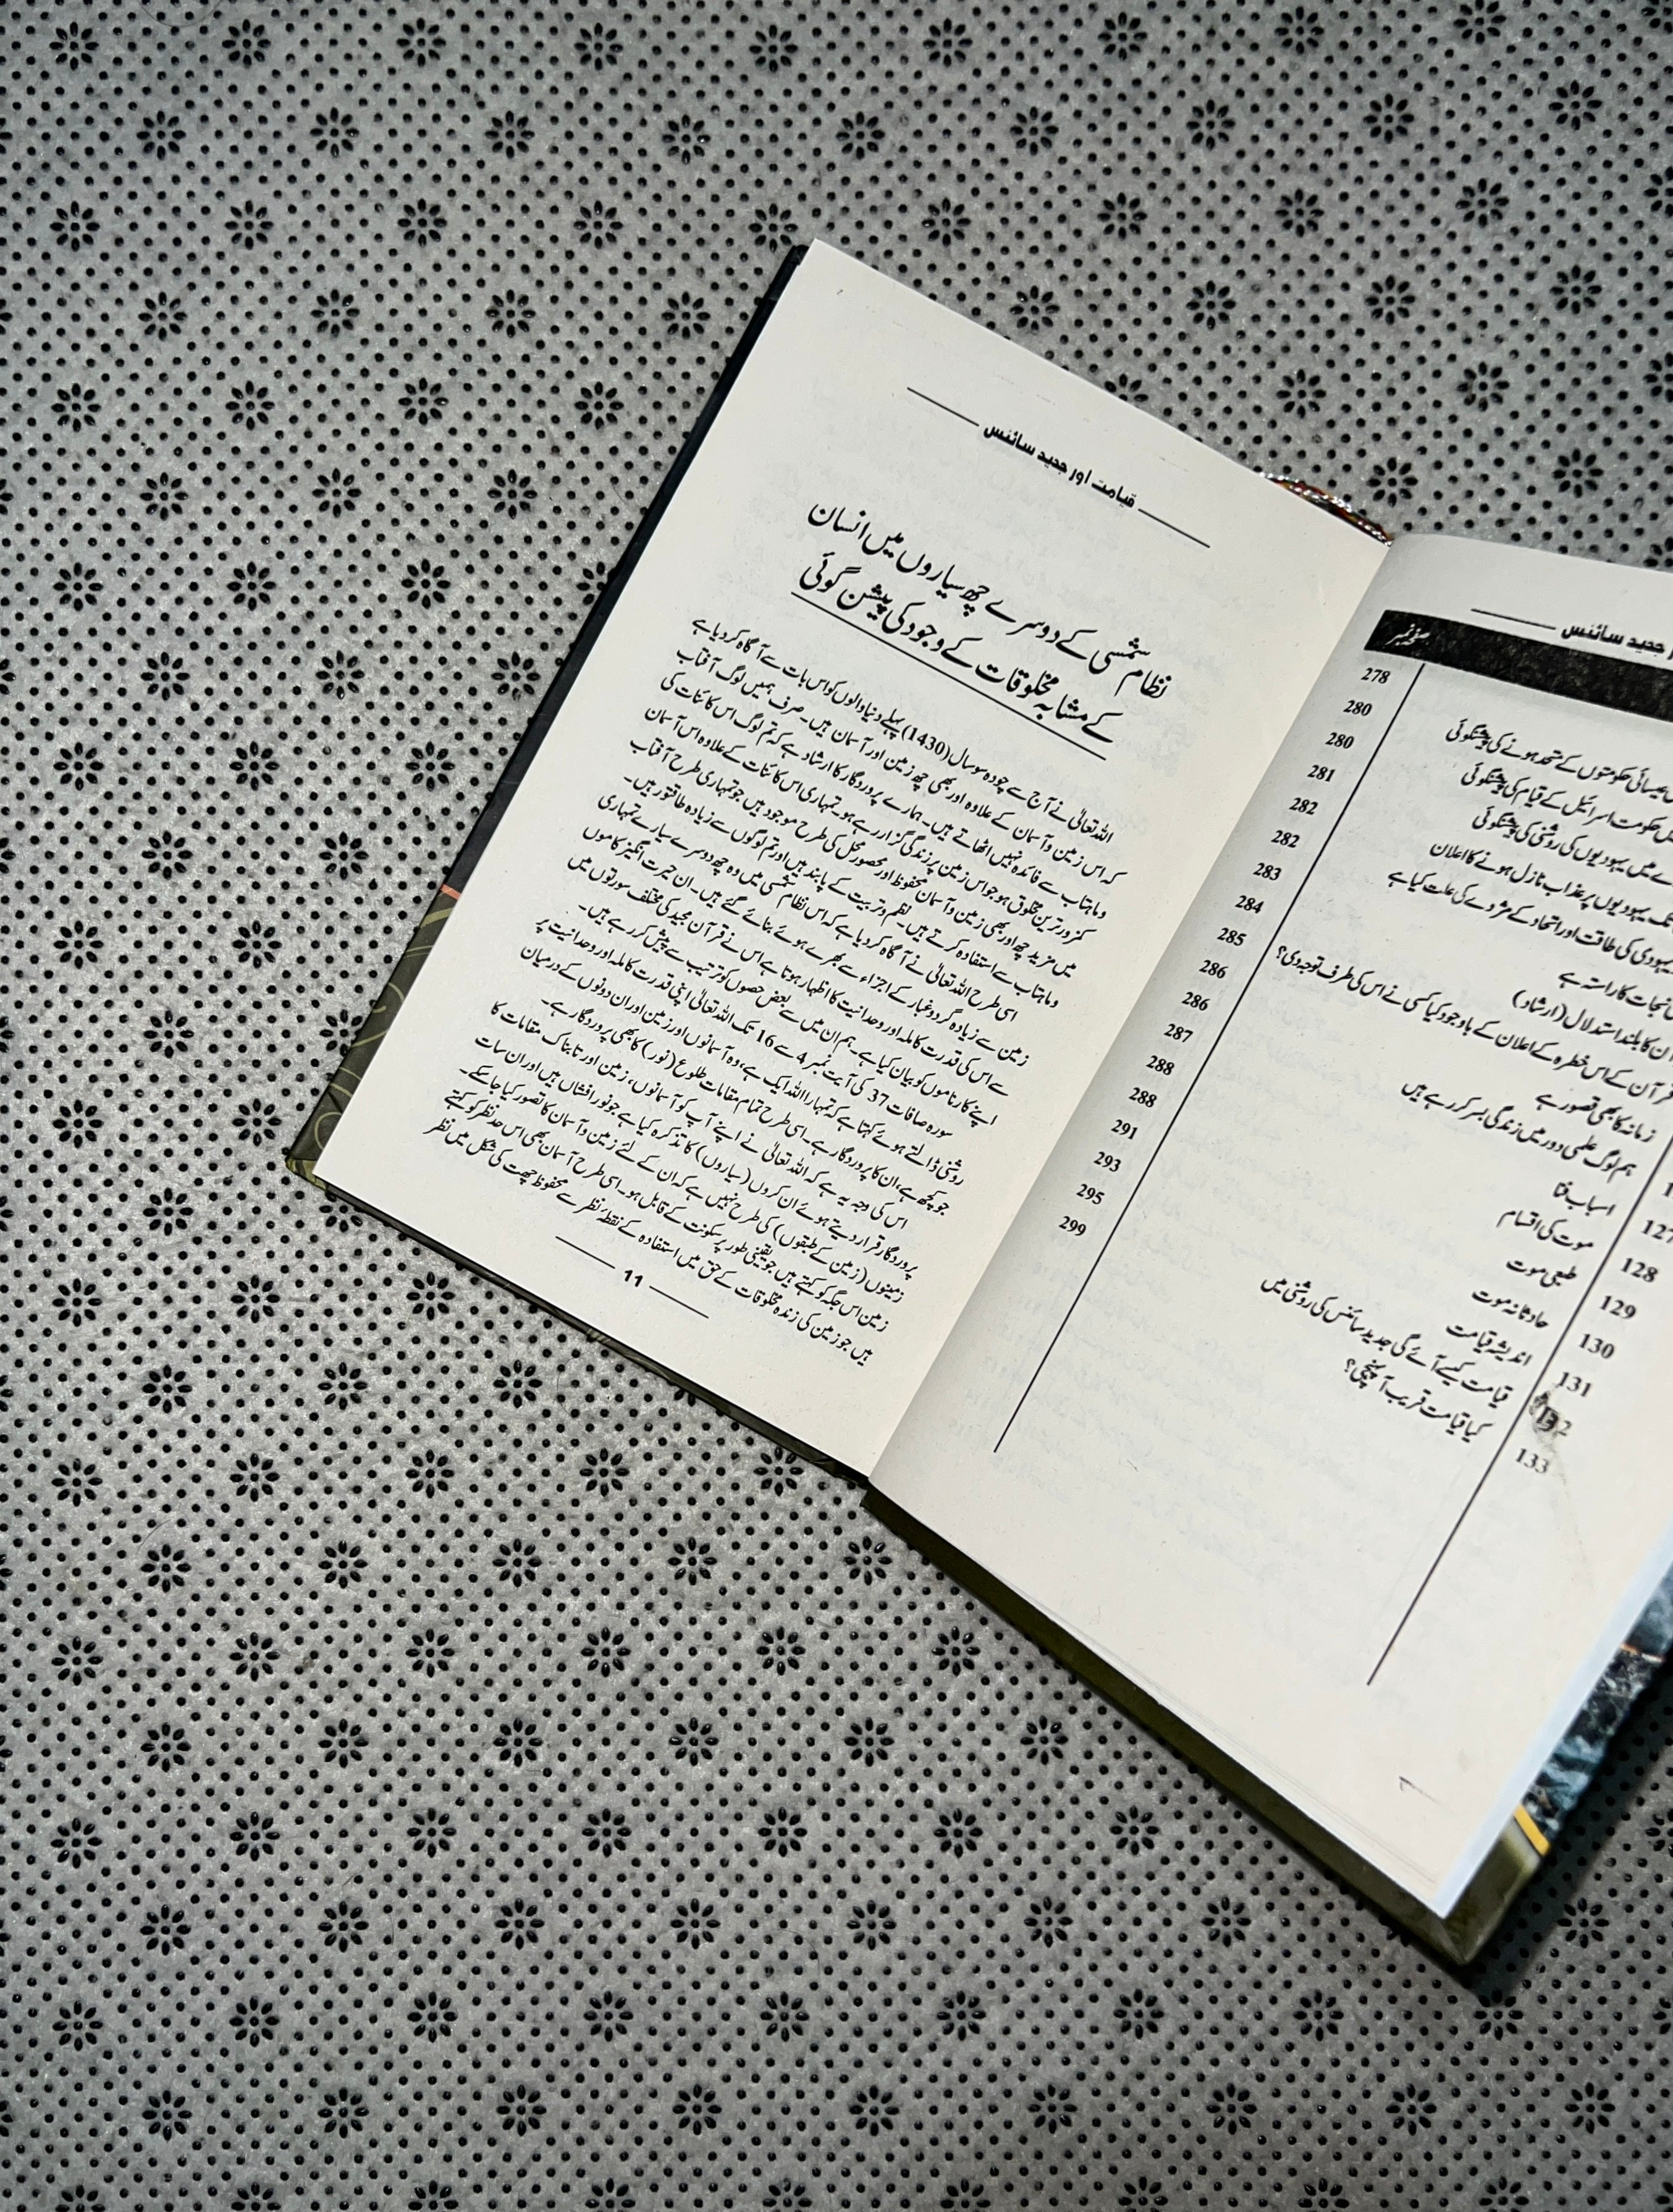 جدید سائنس
صفحہ نمبر
عیسائی حکومتوں کے متحد ہونے کی پیشنگوئی
278
حکومت اسرائیل کے قیام کی پیشنگوئی
280
میں یہودیوں کی روشنی کی پیشنگوئی
280
یہودیوں پر عذاب نازل ہونے کا اعلان
281
یہودی کی طاقت اور اتحاد کے مژدے کی علت کیا ہے
282
نجات کا راستہ ہے
282
کا بلند استدلال (ارشاد)
283
قرآن کے اس خطرہ کے اعلان کے باوجود کیا کسی نے اس کی طرف توجہ دی؟
284
زمانہ کا بھی تصور ہے
285
ہم لوگ علمی دور میں زندگی بسر کر رہے ہیں
286
اسباب فنا
286
موت کی اقسام
287
طبعی موت
288
حادثانہ موت
288
اندیشہ قیامت
291
قیامت کیسے آئے گی جدید سائنس کی روشنی میں
293
کیا قیامت قریب آ پہنچی؟
295
299
127
128
129
130
131
132
133
قیامت اور جدید سائنس
نظام شمسی کے دوسرے چھ سیاروں میں انسان
کے مشابہ مخلوقات کے وجود کی پیشن گوئی
اللہ تعالیٰ نے آج سے چودہ سو سال (1430) پہلے دنیا والوں کو اس بات سے آگاہ کر دیا ہے
کہ اس زمین و آسمان کے علاوہ اور بھی چھ زمین اور آسمان ہیں۔ صرف ہمیں لوگ آفتاب
و ماہتاب سے فائدہ نہیں اٹھاتے ہیں۔ ہمارے پروردگار کا ارشاد ہے کہ تم لوگ اس کائنات کی
کمزور ترین مخلوق ہو جو اس زمین پر زندگی گزار رہے ہو۔ تمہاری اس کائنات کے علاوہ اس آسمان
میں مزید چھ اور بھی زمین و آسمان محفوظ اور محصور محل کی طرح موجود ہیں جو تمہاری طرح آفتاب
و ماہتاب سے استفادہ کرتے ہیں۔ نظم و تربیت کے پابند ہیں اور تم لوگوں سے زیادہ طاقتور ہیں۔
اسی طرح اللہ تعالیٰ نے آگاہ کر دیا ہے کہ اس نظام شمسی میں وہ چھ دوسرے سیارے تمہاری
زمین سے زیادہ گرد و غبار کے اجزاء سے بھرے ہوئے بنائے گئے ہیں۔ ان حیرت انگیز کاموں
سے اس کی قدرت کاملہ اور وحدانیت کا اظہار ہوتا ہے اس نے قرآن مجید کی مختلف سورتوں میں
اپنے کارناموں کو بیان کیا ہے۔ ہم ان میں سے بعض حصوں کو ترتیب سے پیش کر رہے ہیں۔
سورہ صافات 37 کی آیت نمبر 4 سے 16 تک اللہ تعالیٰ اپنی قدرت کاملہ اور وحدانیت پر
روشنی ڈالتے ہوئے کہتا ہے کہ تمہارا اللہ ایک ہے، وہ آسمانوں اور زمین اور ان دونوں کے درمیان
جو کچھ ہے، ان کا پروردگار ہے۔ اسی طرح تمام مقامات طلوع (نور) کا بھی پروردگار ہے۔
اس کی وجہ یہ ہے کہ اللہ تعالیٰ نے اپنے آپ کو آسمانوں، زمین اور تابناک مقامات کا
پروردگار قرار دیتے ہوئے ان کروں (سیاروں) کا تذکرہ کیا ہے جو نور افشاں ہیں اور ان سات
زمینوں (زمین کے طبقوں) کی طرح نہیں ہے کہ ان کے لئے زمین و آسمان کا تصور کیا جا سکے۔
زمین اس جگہ کو کہتے ہیں جو یقینی طور پر سکونت کے قابل ہو۔ اسی طرح آسمان بھی اس حد نظر کو کہتے
ہیں جو زمین کی زندہ مخلوقات کے حق میں استفادہ کے نقطۂ نظر سے محفوظ چھت کی شکل میں نظر
11